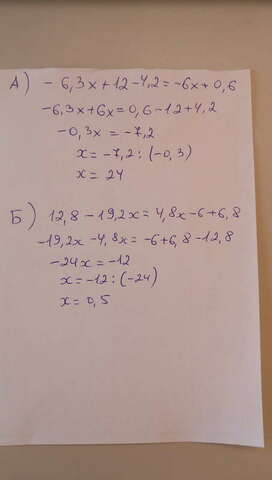 А) - 6,3x+12-4,2=-6x+0,6
-6,3x+6x=0,6-12+4,2
-0,3x=-7,2
x=-7,2:(-0,3)
x=24
Б) 12,8-19,2x=4,8x-6+6,8
-19,2x-4,8x=-6+6,8-12,8
-24x=-12
x=-12:(-24)
x=0,5